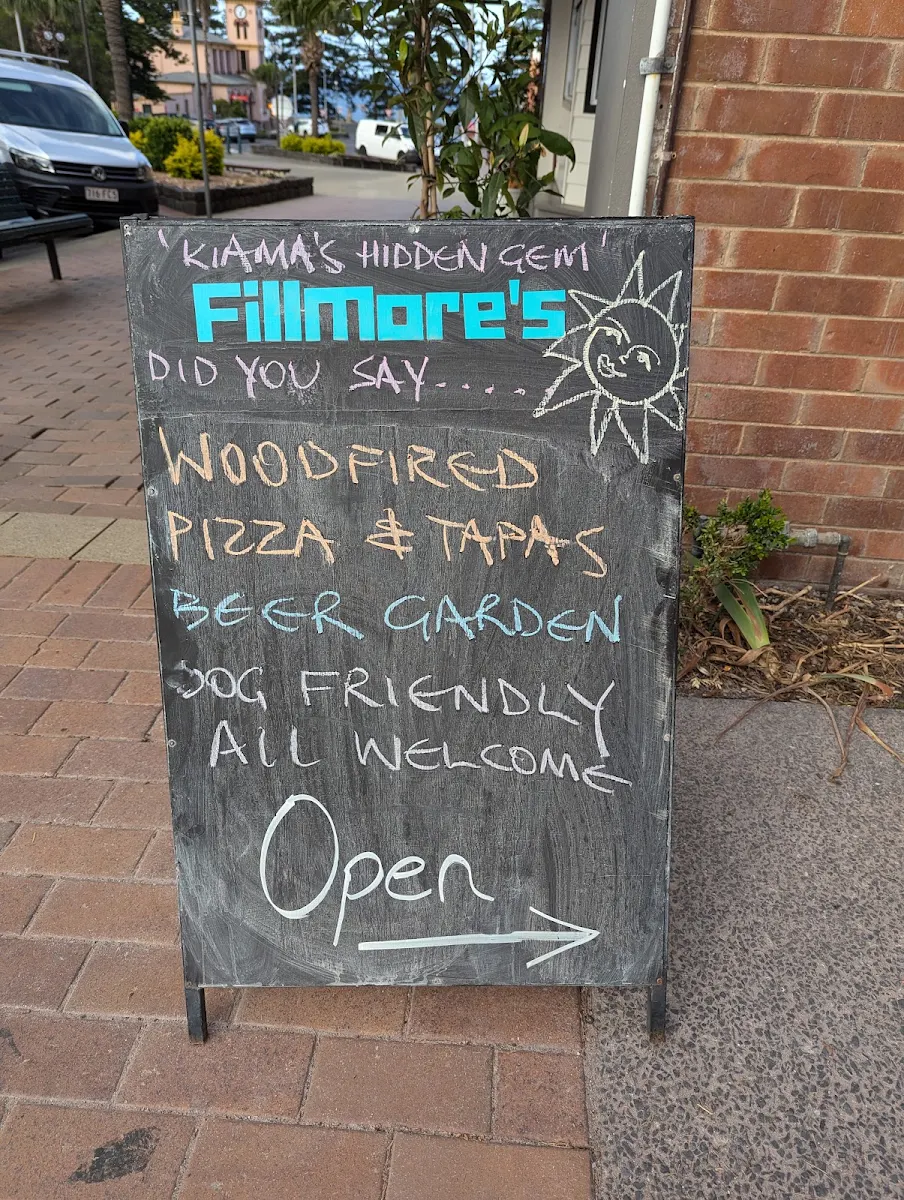 'KIAMA'S HIDDEN GEM'
Fillmore's
DID YOU SAY.....
WOODFIRED
PIZZA & TAPAS
BEER GARDEN
DOG FRIENDLY
ALL WELCOME
Open